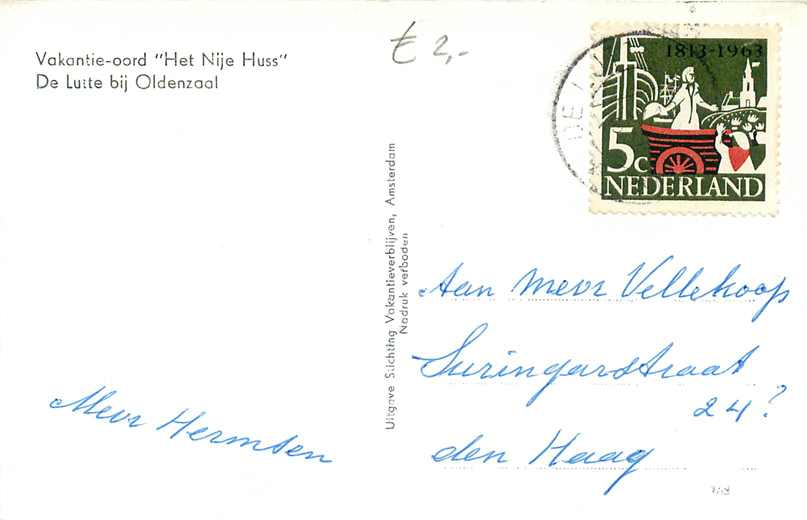 Vakantie-oord "Het Nije Huss"
De Lutte bij Oldenzaal
€ 2,-
1813-1963
5c
NEDERLAND
DE LU
Uitgave Stichting Vakantieverblijven, Amsterdam
Nadruk verboden
Aan Mevr Vellekoop
Suringarstraat
24?
den Haag
Mevr Hermsen